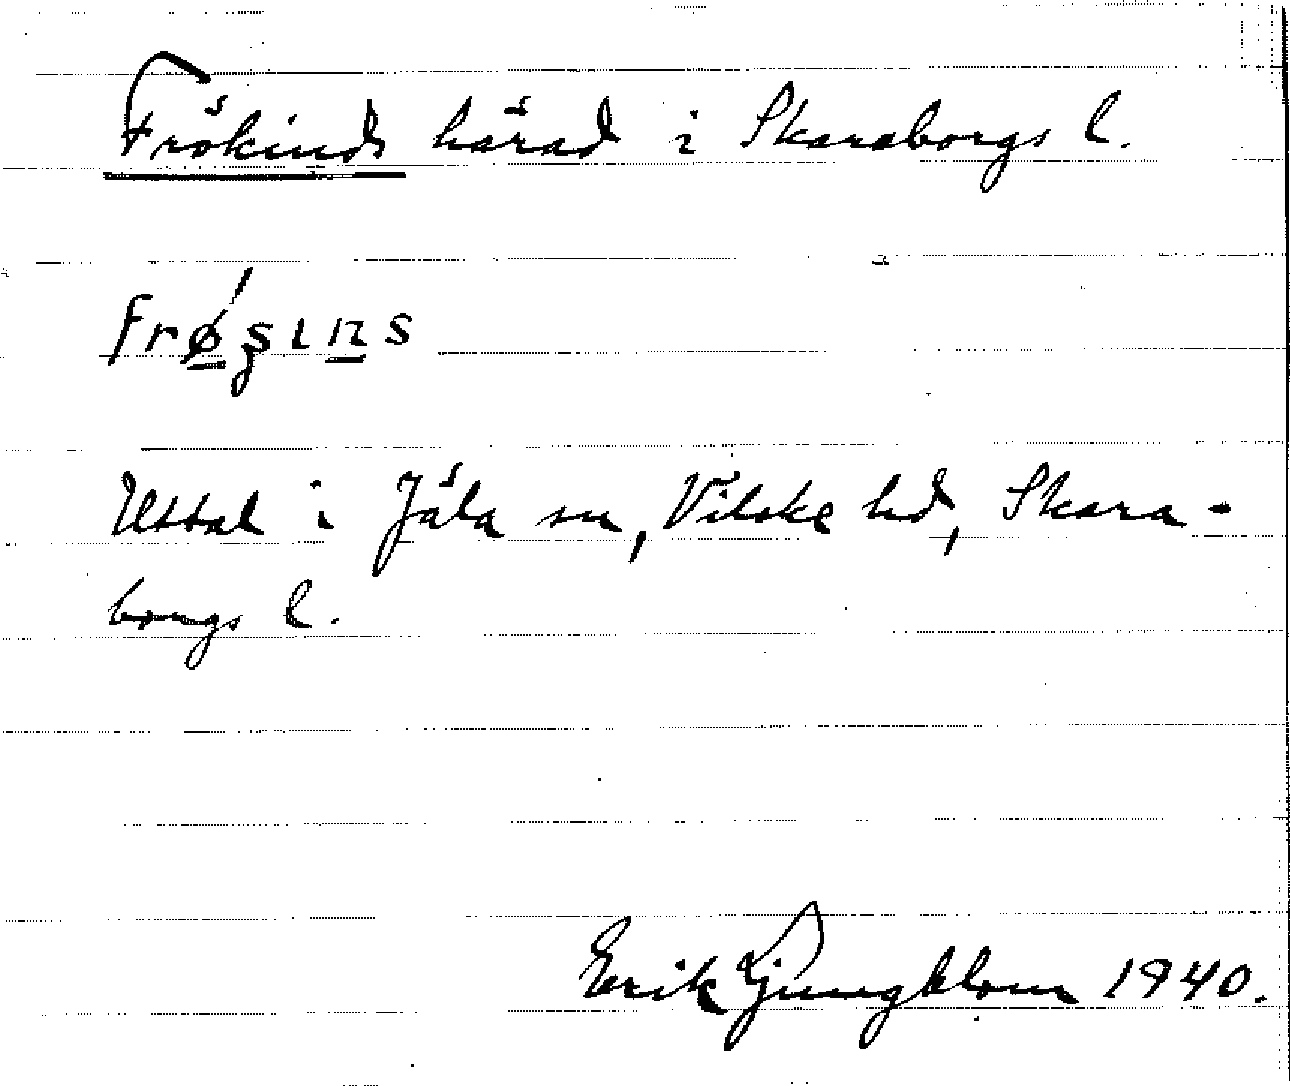 Frökinds härad i Skaraborgs l.
frǿ̱ʂɩṉs
Uttal i Jäla sn, Vilske hd, Skara-
borgs l.
Erik Ljungblom 1940.